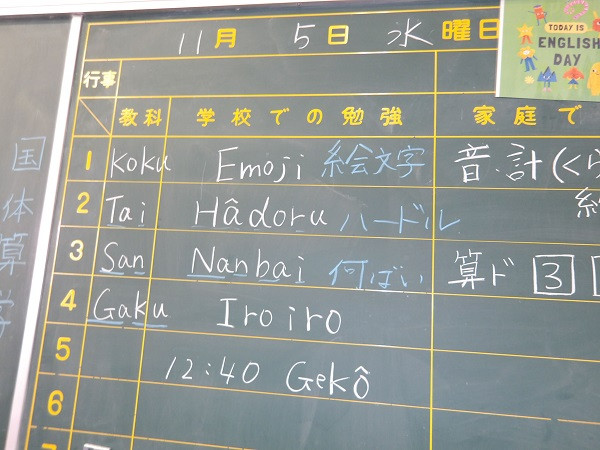 11月 5日 水曜日
TODAY IS
ENGLISH
DAY
行事
教科 学校での勉強 家庭で
1 Koku Emoji 絵文字 音、計(くら
2 Tai Hâdoru ハードル
3 San Nanbai 何ばい 算ド 3
4 Gaku Iroiro
5 12:40 Gekô
6
国
体
算
学